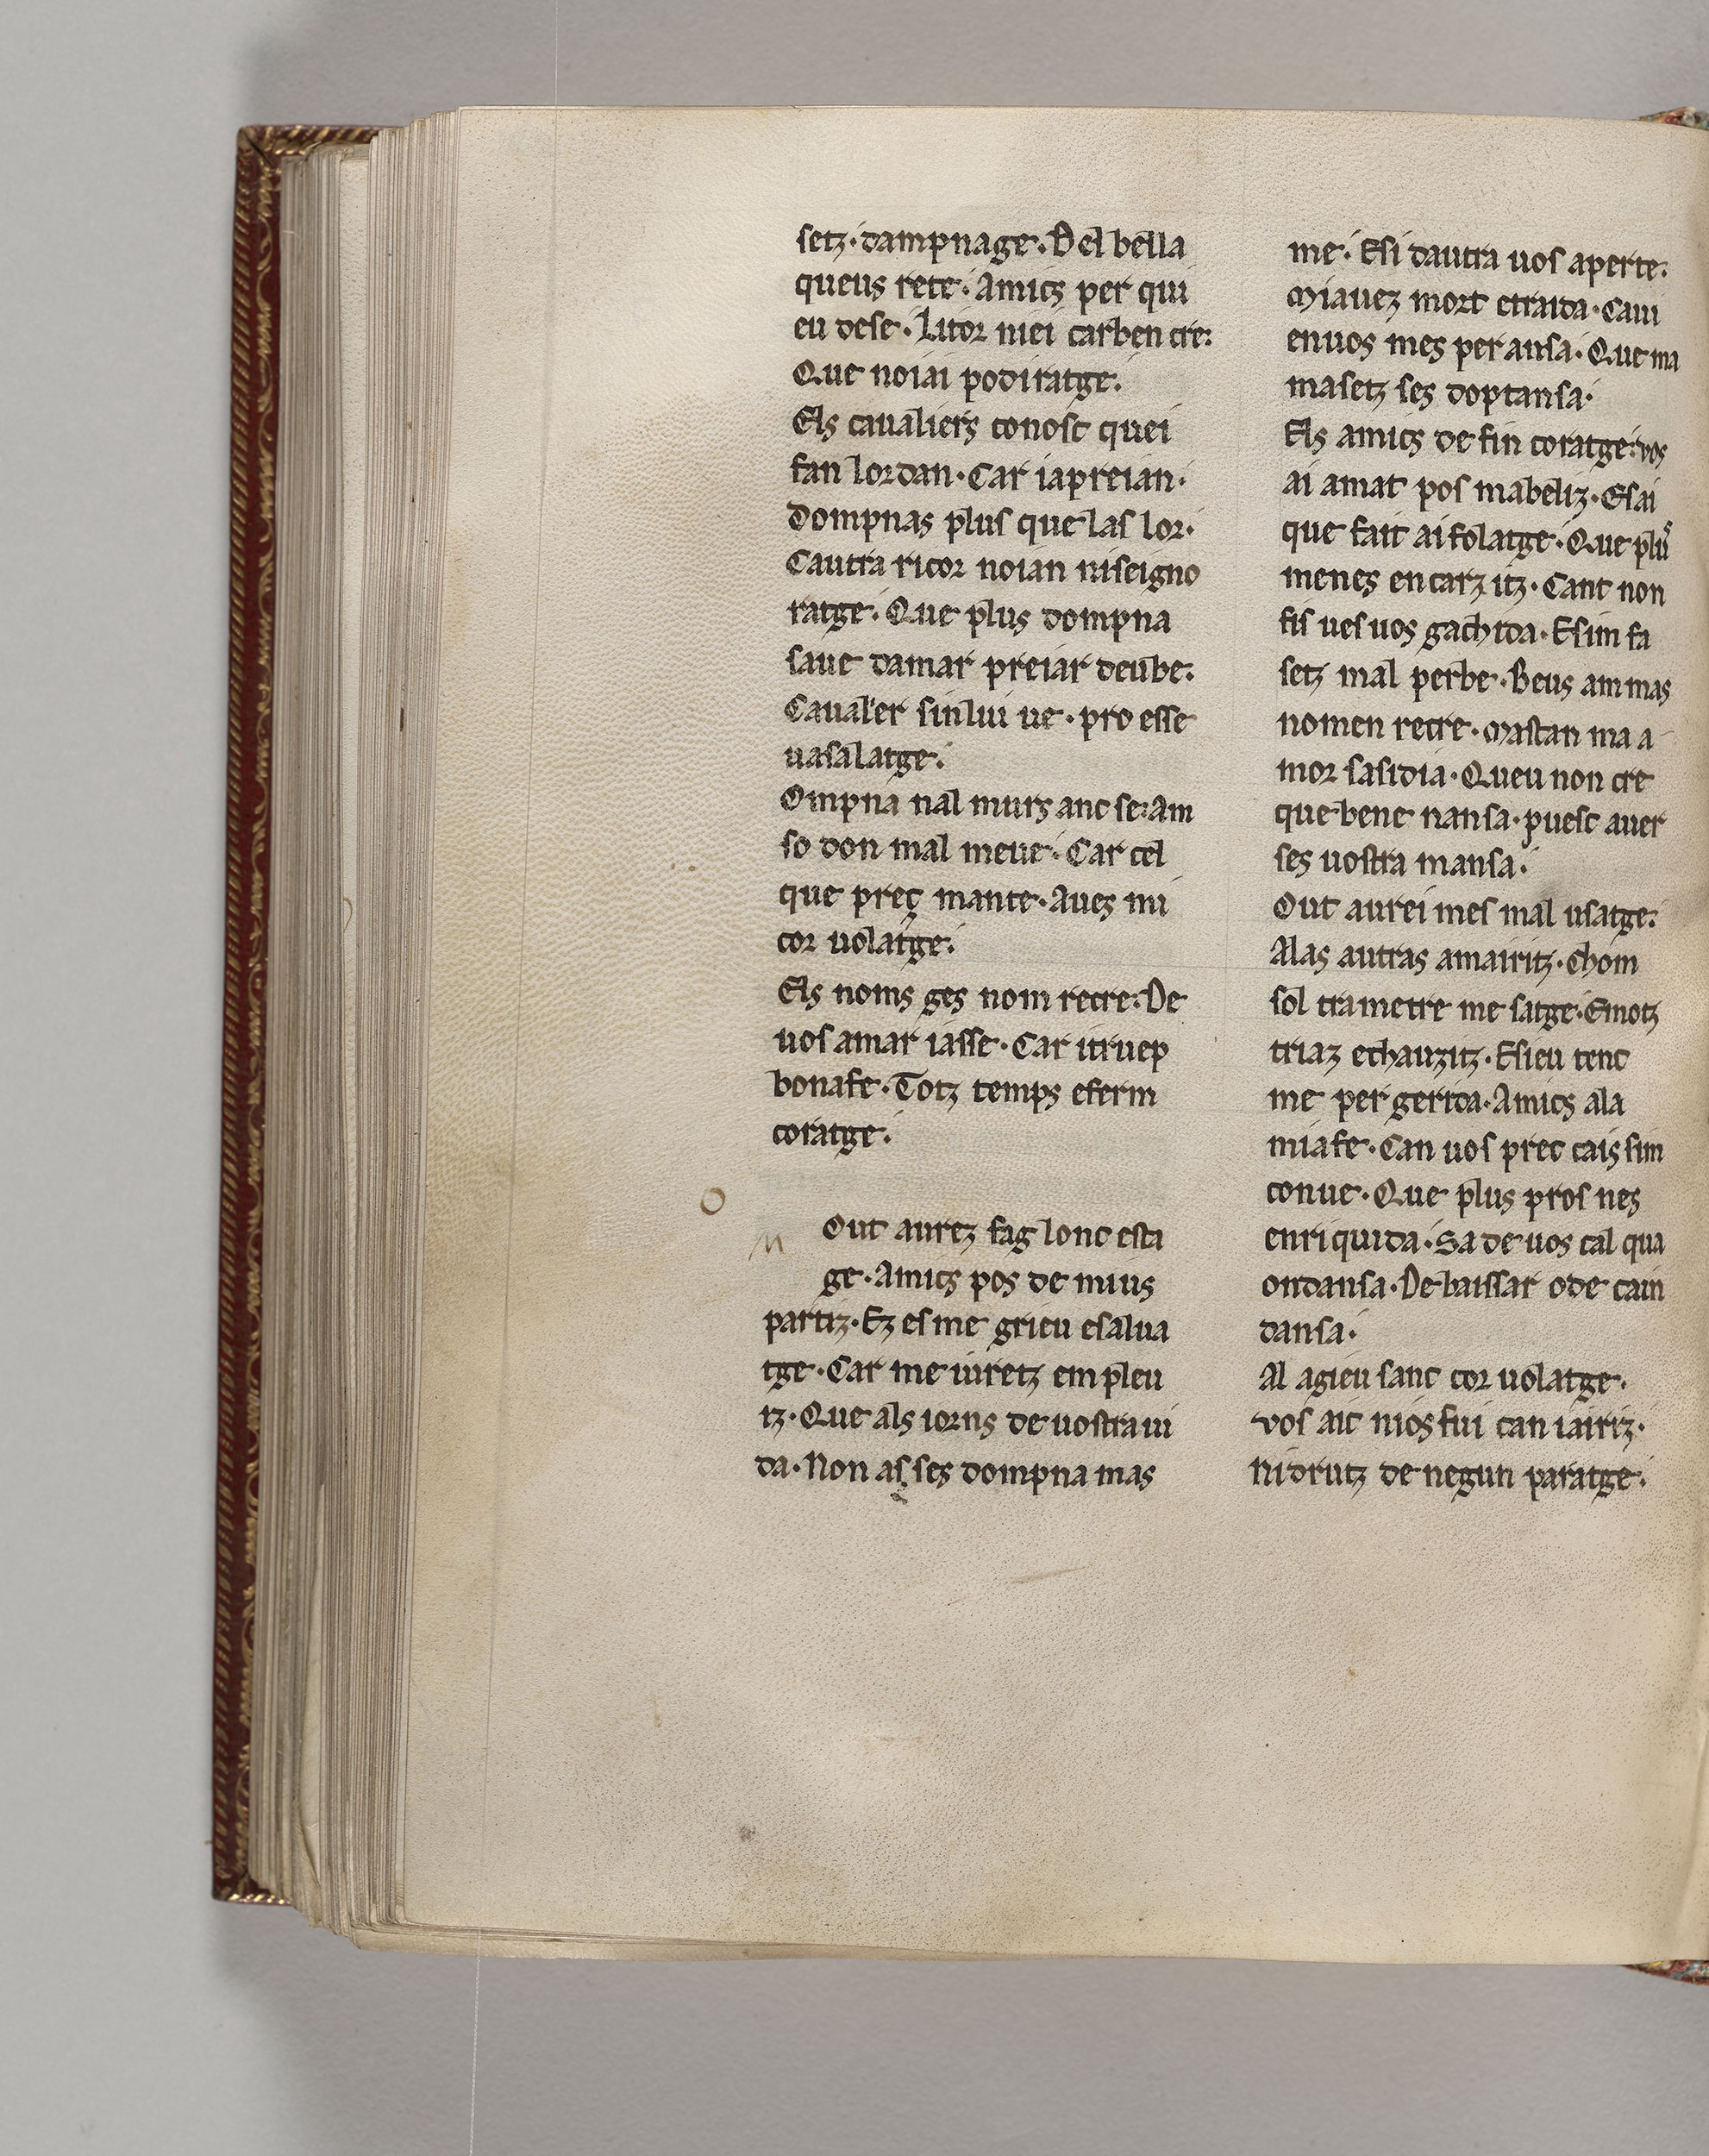 setz·dampnage·Del bella
queus rete·Amics per qui
eu dese·Litor niei carben cre:
Que noiai podiratge·
Els caualiers conosc quei
fan lor dan·Car iapreian·
Dompnas plus que las lor·
Cautra ricor noian niseigno
ratge·Que plus dompna
saue damar preiar deube·
Caualier sinlui ue·pro esse
uasalatge·
Ompna nal murs anc se:am
so don mal meue·Car cel
que preç mante·Aues mi
cor uolatge·
Els noms ges nom recre:De
uos amar iasse·Car itruep
bonafe·Totz temps eferm
coratge·
O
M
Out aurez fag lonc esta
ge·Amics pos de mi us
partiz·Ez es me grieu esalua
tge·Car me iuretz em pleu
iz·Que als iorns de uostra ui
da·Non as ses dompna mas
me·Esi dautra uos aperte:
Miauez mort etraida·Caui
enuos mes peransa·Que ma
masetz ses doptansa·
Els amics de fin coratge:vos
ai amat pos mabeliz·Esai
que fait ai folatge·Que plus
menes encarz itz·Canc non
fis ues uos gachida·Esim fa
setz mal perbe·Beus am mas
nomen recre·Mastan ma a
mor sasidia·Queu non cre
que bene nansa·puesc auer
ses uostra mansa·
Out aurei mes mal usatge:
Alas autras amairitz·Chom
sol trametre me satge·Emotz
triaz echauzitz·Esieu tenc
me per gerida·Amics ala
mia fe·Can uos prec cais sim
conue·Que plus pros nes
enriquida·Sa de uos cal qua
ondansa·De baissar ode cain
dansa·
Al agieu sanc cor uolatge·
vos aic nios fui can iairiz·
Ni drutz de negun paratge·